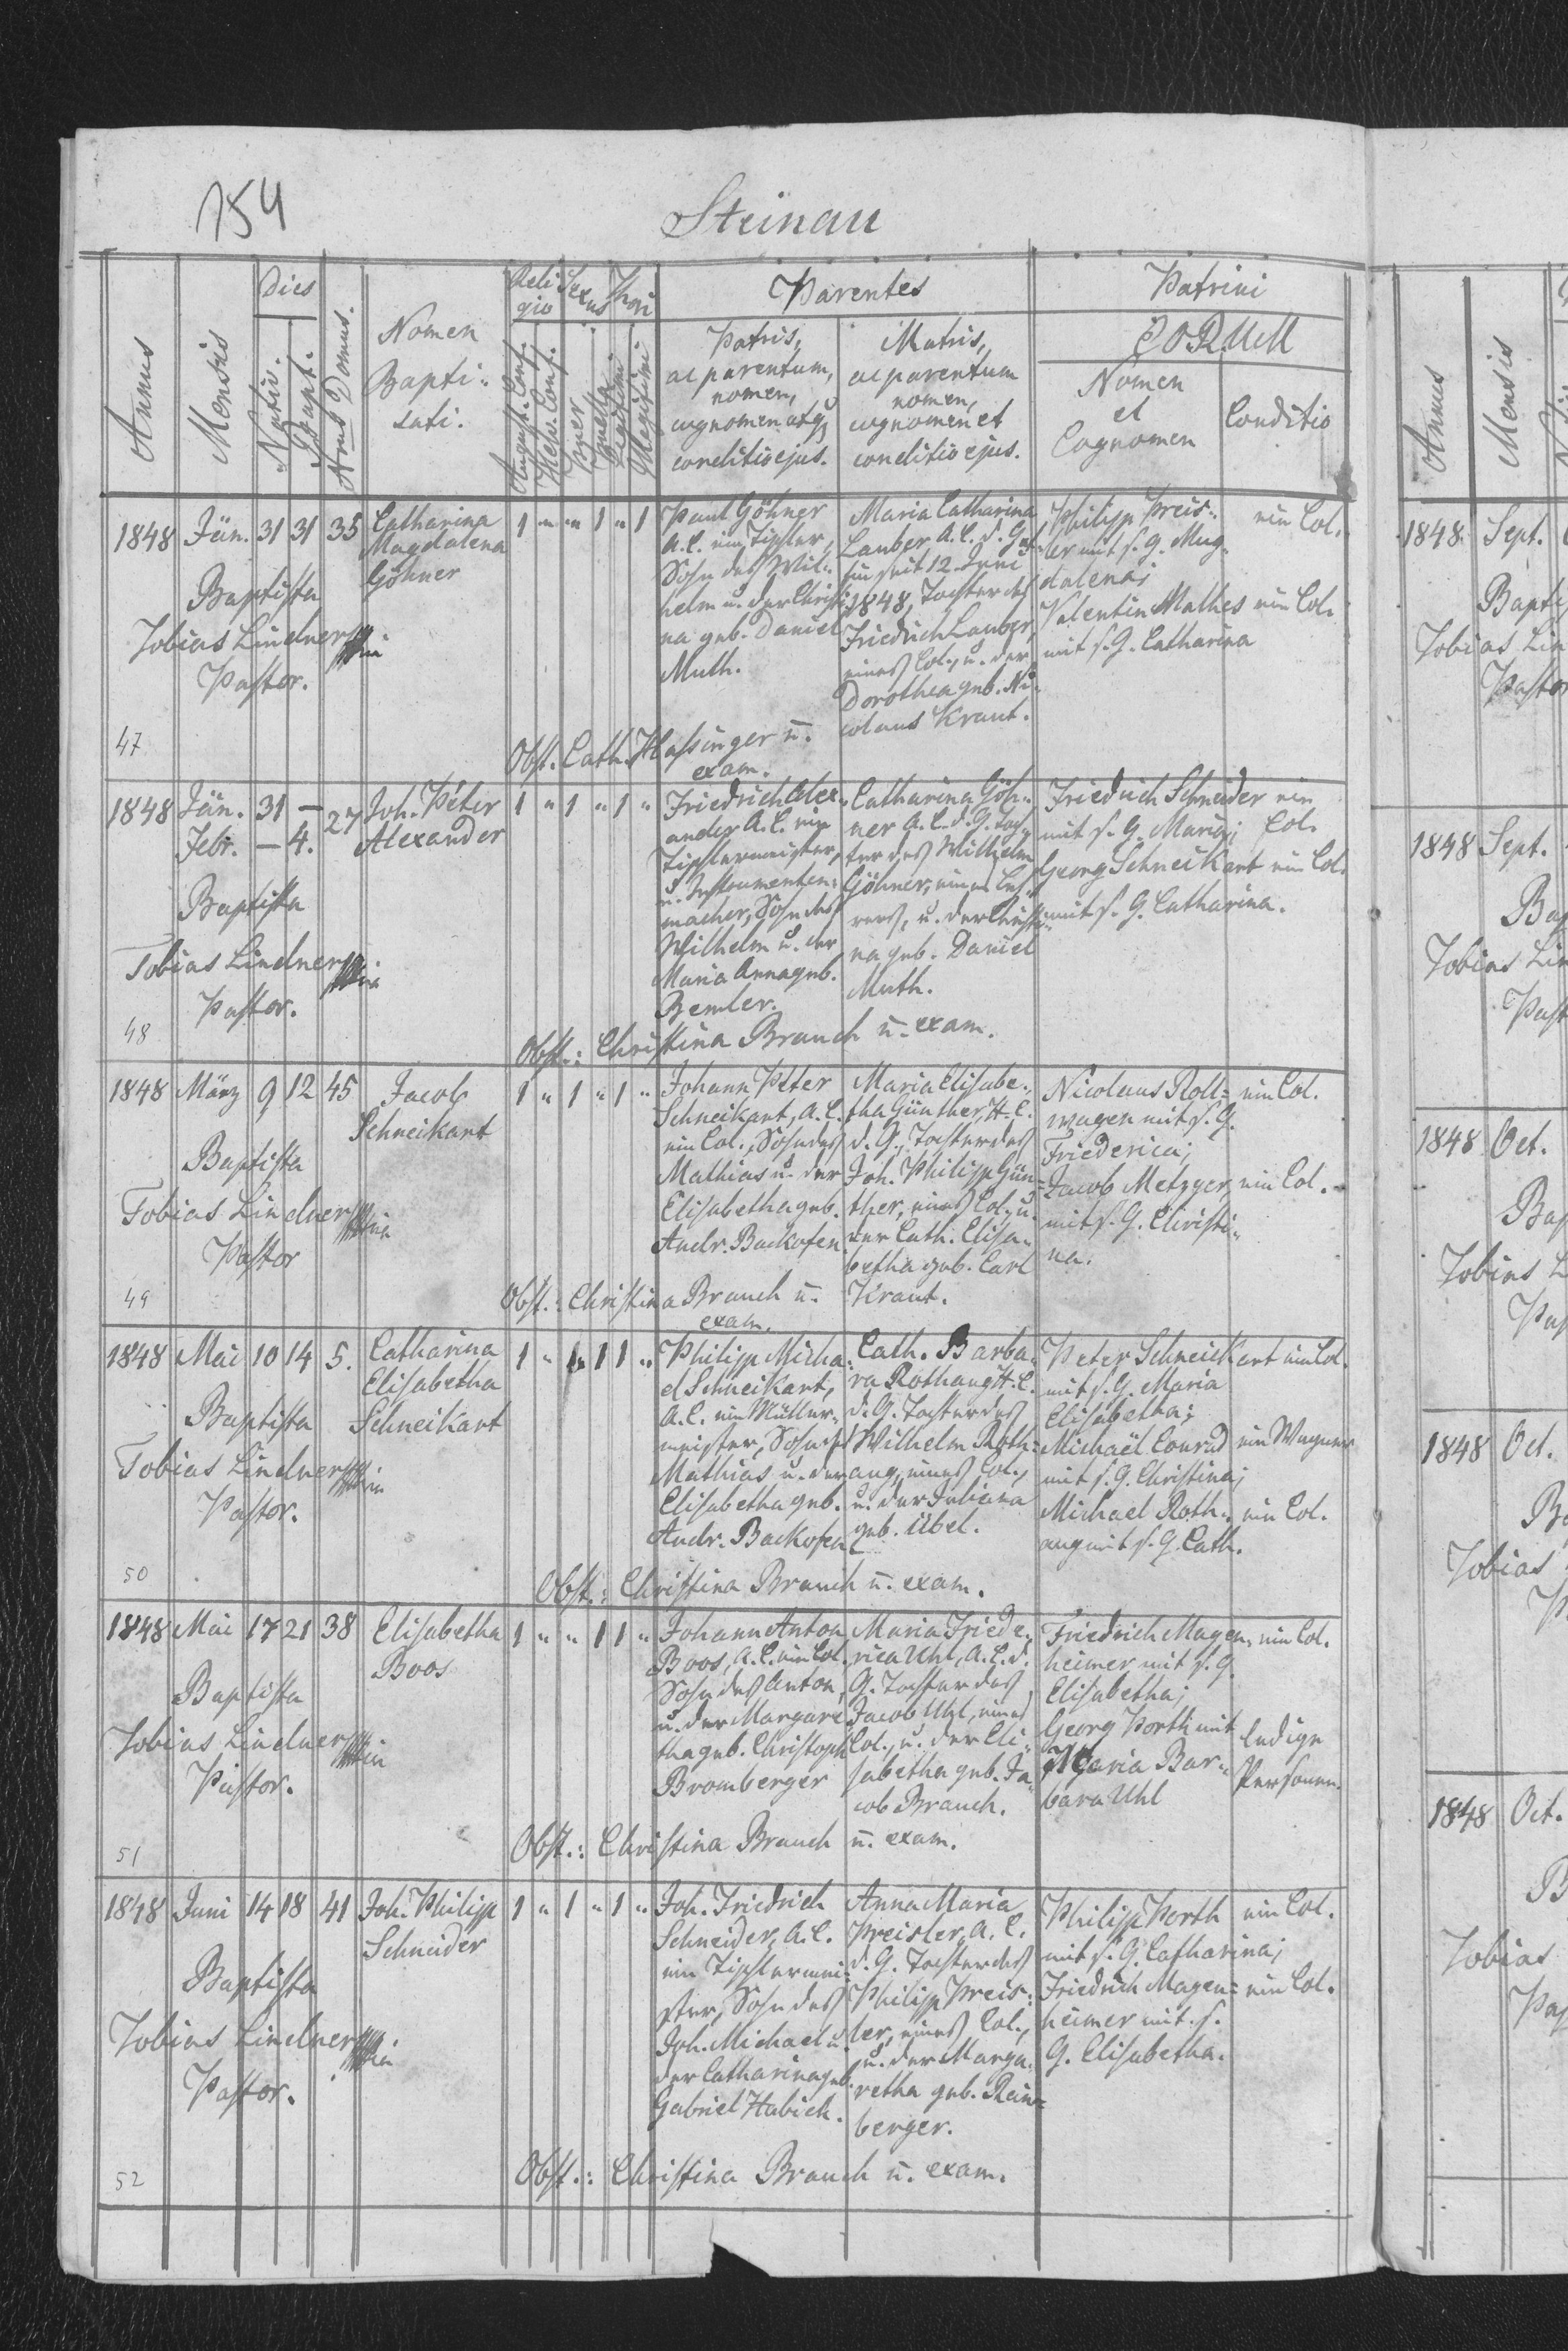 154
Steinau
Annus
Mensis
Dies
Nativ.
Bapt.
Nrus Domus.
Nomen
Bapti-
sati.
Reli
gio
August. Conf.
Helv. Conf.
Sexus
Puer
Puella
Thori
Legitimi
Illegitimi
Parentes
Patris,
ac parentum,
nomen,
cognomen atq
conditio ejus.
Matris,
ac parentum
nomen,
cognomen et
conditio ejus.
Patrini
EORUM
Nomen
et
Cognomen
Conditio
1848 Jän. 31 31 35
Catharina
Magdalena
Göhner
1 " " 1 " 1
Baptista
Tobias Lindner
Pastor.
47
Paul Göhner
A. C. ein Tischler,
Sohn des Wil-
helm u. der Christi-
na geb. Daniel
Muth.
Maria Catharina
Lauber A. C. d. G.
seit 12. Juni
1848, Tochter des
Friedrich Lauber,
eines Col., u. der
Dorothea geb. Ni-
colaus Kraut.
Philipp Preis- ein Col.
ler mit s. G. Mag-
dalena;
Valentin Mathes ein Col.
mit s. G. Catharina
Obst. Cath. Hassinger u.
exam.
1848 Jän. 31 — 27
Febr. — 4.
Joh. Peter
Alexander
1 " 1 " 1 "
Baptista
Tobias Lindner
Pastor.
48
Friedrich Alex-
ander A. C. ein
Tischlermeister,
u. Instrumenten-
macher, Sohn des
Wilhelm u. der
Maria Anna geb.
Bemler.
Catharina Göh-
ner A. C. d. G. Toch-
ter des Wilhelm
Göhner, eines Leh-
rers, u. der Christi-
na geb. Daniel
Muth.
Friedrich Schneider ein
mit s. G. Maria; Col.
Georg Schneikart ein Col.
mit s. G. Catharina.
Obst.: Christina Brauch u. exam.
1848 März 9 12 45
Jacob
Schneikart
1 " 1 " 1 "
Baptista
Tobias Lindner
Pastor
49
Johann Peter
Schneikart, A. C.
ein Col., Sohn des
Mathias u. der
Elisabetha geb.
Andr. Backofen
Maria Elisabe-
tha Günther, H. C.
d. G., Tochter des
Joh. Philipp Gün-
ther, eines Col. u.
der Cath. Elisa-
betha geb. Carl
Kraut.
Nicolaus Roll- ein Col.
wagen mit s. G.
Friederica;
Jacob Metzger, ein Col.
mit s. G. Christi-
na.
Obst.: Christina Brauch u.
exam.
1848 Mai 10 14 5.
Catharina
Elisabetha
Schneikart
1 " " 1 1 "
Baptista
Tobias Lindner
Pastor.
50
Philipp Micha-
el Schneikart,
A. C. ein Müller-
meister, Sohn des
Mathias u. der
Elisabetha geb.
Andr. Backofen
Cath. Barba-
ra Rothaug H. C.
d. G. Tochter des
Wilhelm Roth-
aug, eines Col.,
u. der Juliana
geb. Übel.
Peter Schneickart ein Col.
mit s. G. Maria
Elisabetha;
Michaël Conrad ein Wagner
mit s. G. Christina;
Michael Roth- ein Col.
aug mit s. G. Cath.
Obst.: Christina Brauch u. exam.
1848 Mai 17 21 38
Elisabetha
Boos
1 " " 1 1 "
Baptista
Tobias Lindner
Pastor.
51
Johann Anton
Boos, A. C. ein Col.
Sohn des Anton,
u. der Margare-
tha geb. Christoph
Bromberger
Maria Friede-
rica Uhl, A. C. d.
G. Tochter des
Jacob Uhl, eines
Col., u. der Eli-
sabetha geb. Ja-
cob Brauch.
Friedrich Magen- ein Col.
heimer mit s. G.
Elisabetha;
Georg Porth mit ledige
Maria Bar- Personen.
bara Uhl
Obst.: Christina Brauch u. exam.
1848 Juni 14 18 41
Joh. Philipp
Schneider
1 " 1 " 1 "
Baptista
Tobias Lindner
Pastor.
52
Joh. Friedrich
Schneider, A. C.
ein Tischlermei-
ster, Sohn des
Joh. Michael u.
der Catharina geb.
Gabriel Habich.
Anna Maria
Preisler, A. C.
d. G. Tochter des
Philipp Preis-
ler, eines Col.,
u. der Marga-
retha geb. Rein-
berger.
Philipp Porth ein Col.
mit s. G. Catharina;
Friedrich Magen- ein Col.
heimer mit s.
G. Elisabetha.
Obst.: Christina Brauch u. exam.
Annus
Mensis
1848 Sept.
Bapti
Tobias Lin
Pastor
1848 Sept.
Bap
Tobias Lin
Past
1848 Oct.
Bap
Tobias L
Pas
1848 Oct.
Ba
Tobias
P
1848 Oct.
B
Tobias
Pas